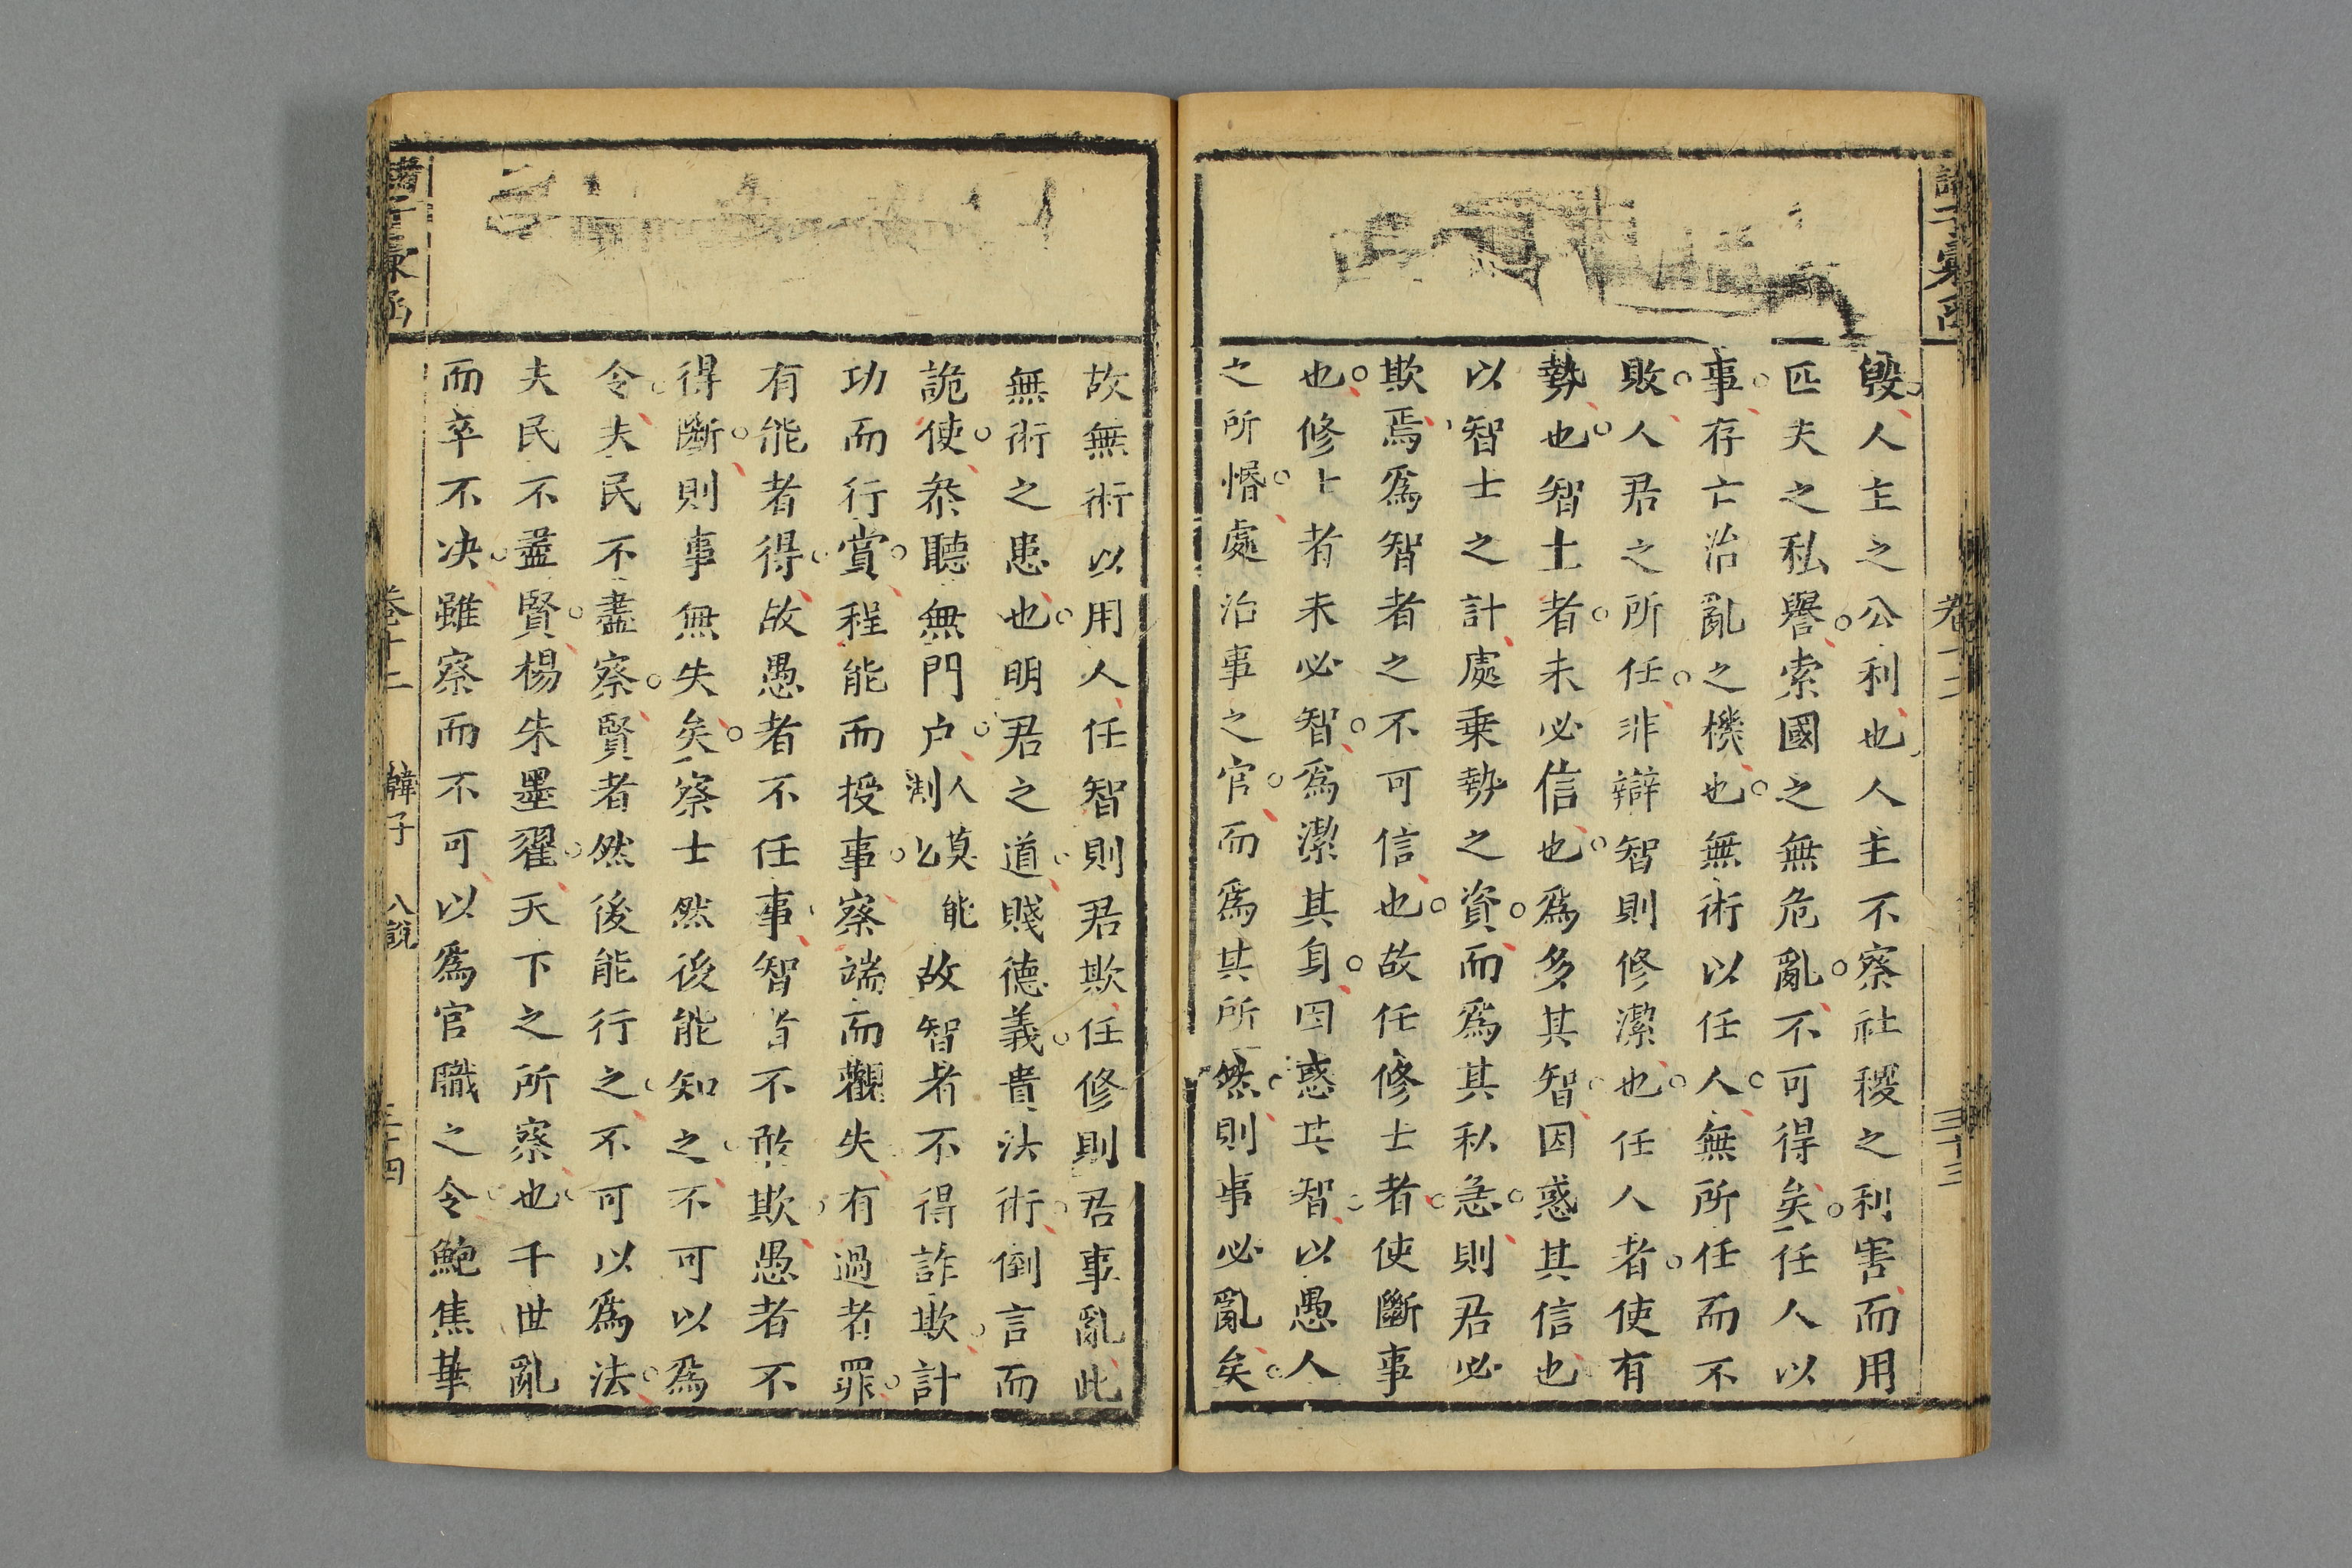 毀人主之公利也人主不察社稷之利害而用
匹夫之私譽索國之無危亂不可得矣任人以
事存亡治亂之機也無術以任人無所任而不
敗人君之所任非辯智則修潔也任人者使有
勢也智士者未必信也爲多其智因惑其信也
以智士之計處乗勢之資而爲其私急則君必
欺焉爲智者之不可信也故任修士者使斷事
也修士者未必智爲潔其身因惑其智以愚人
之所惽處治事之官而爲其所然則事必亂矣
卷十二
三十三
故無術以用人任智則君欺任修則君事亂此
無術之患也明君之道賤德義貴法術倒言而
詭使叅聽無門户人莫能測公故智者不得詐欺計
功而行賞程能而授事察端而觀失有過者罪
有能者得故愚者不任事智者不敢欺愚者不
得斷則事無失矣察士然後能知之不可以爲
令夫民不盡察賢者然後能行之不可以爲法
夫民不盡賢楊朱墨翟天下之所察也千世亂
而卒不决雖察而不可以爲官職之令鮑焦華
卷十二
韓子
八説
三十四